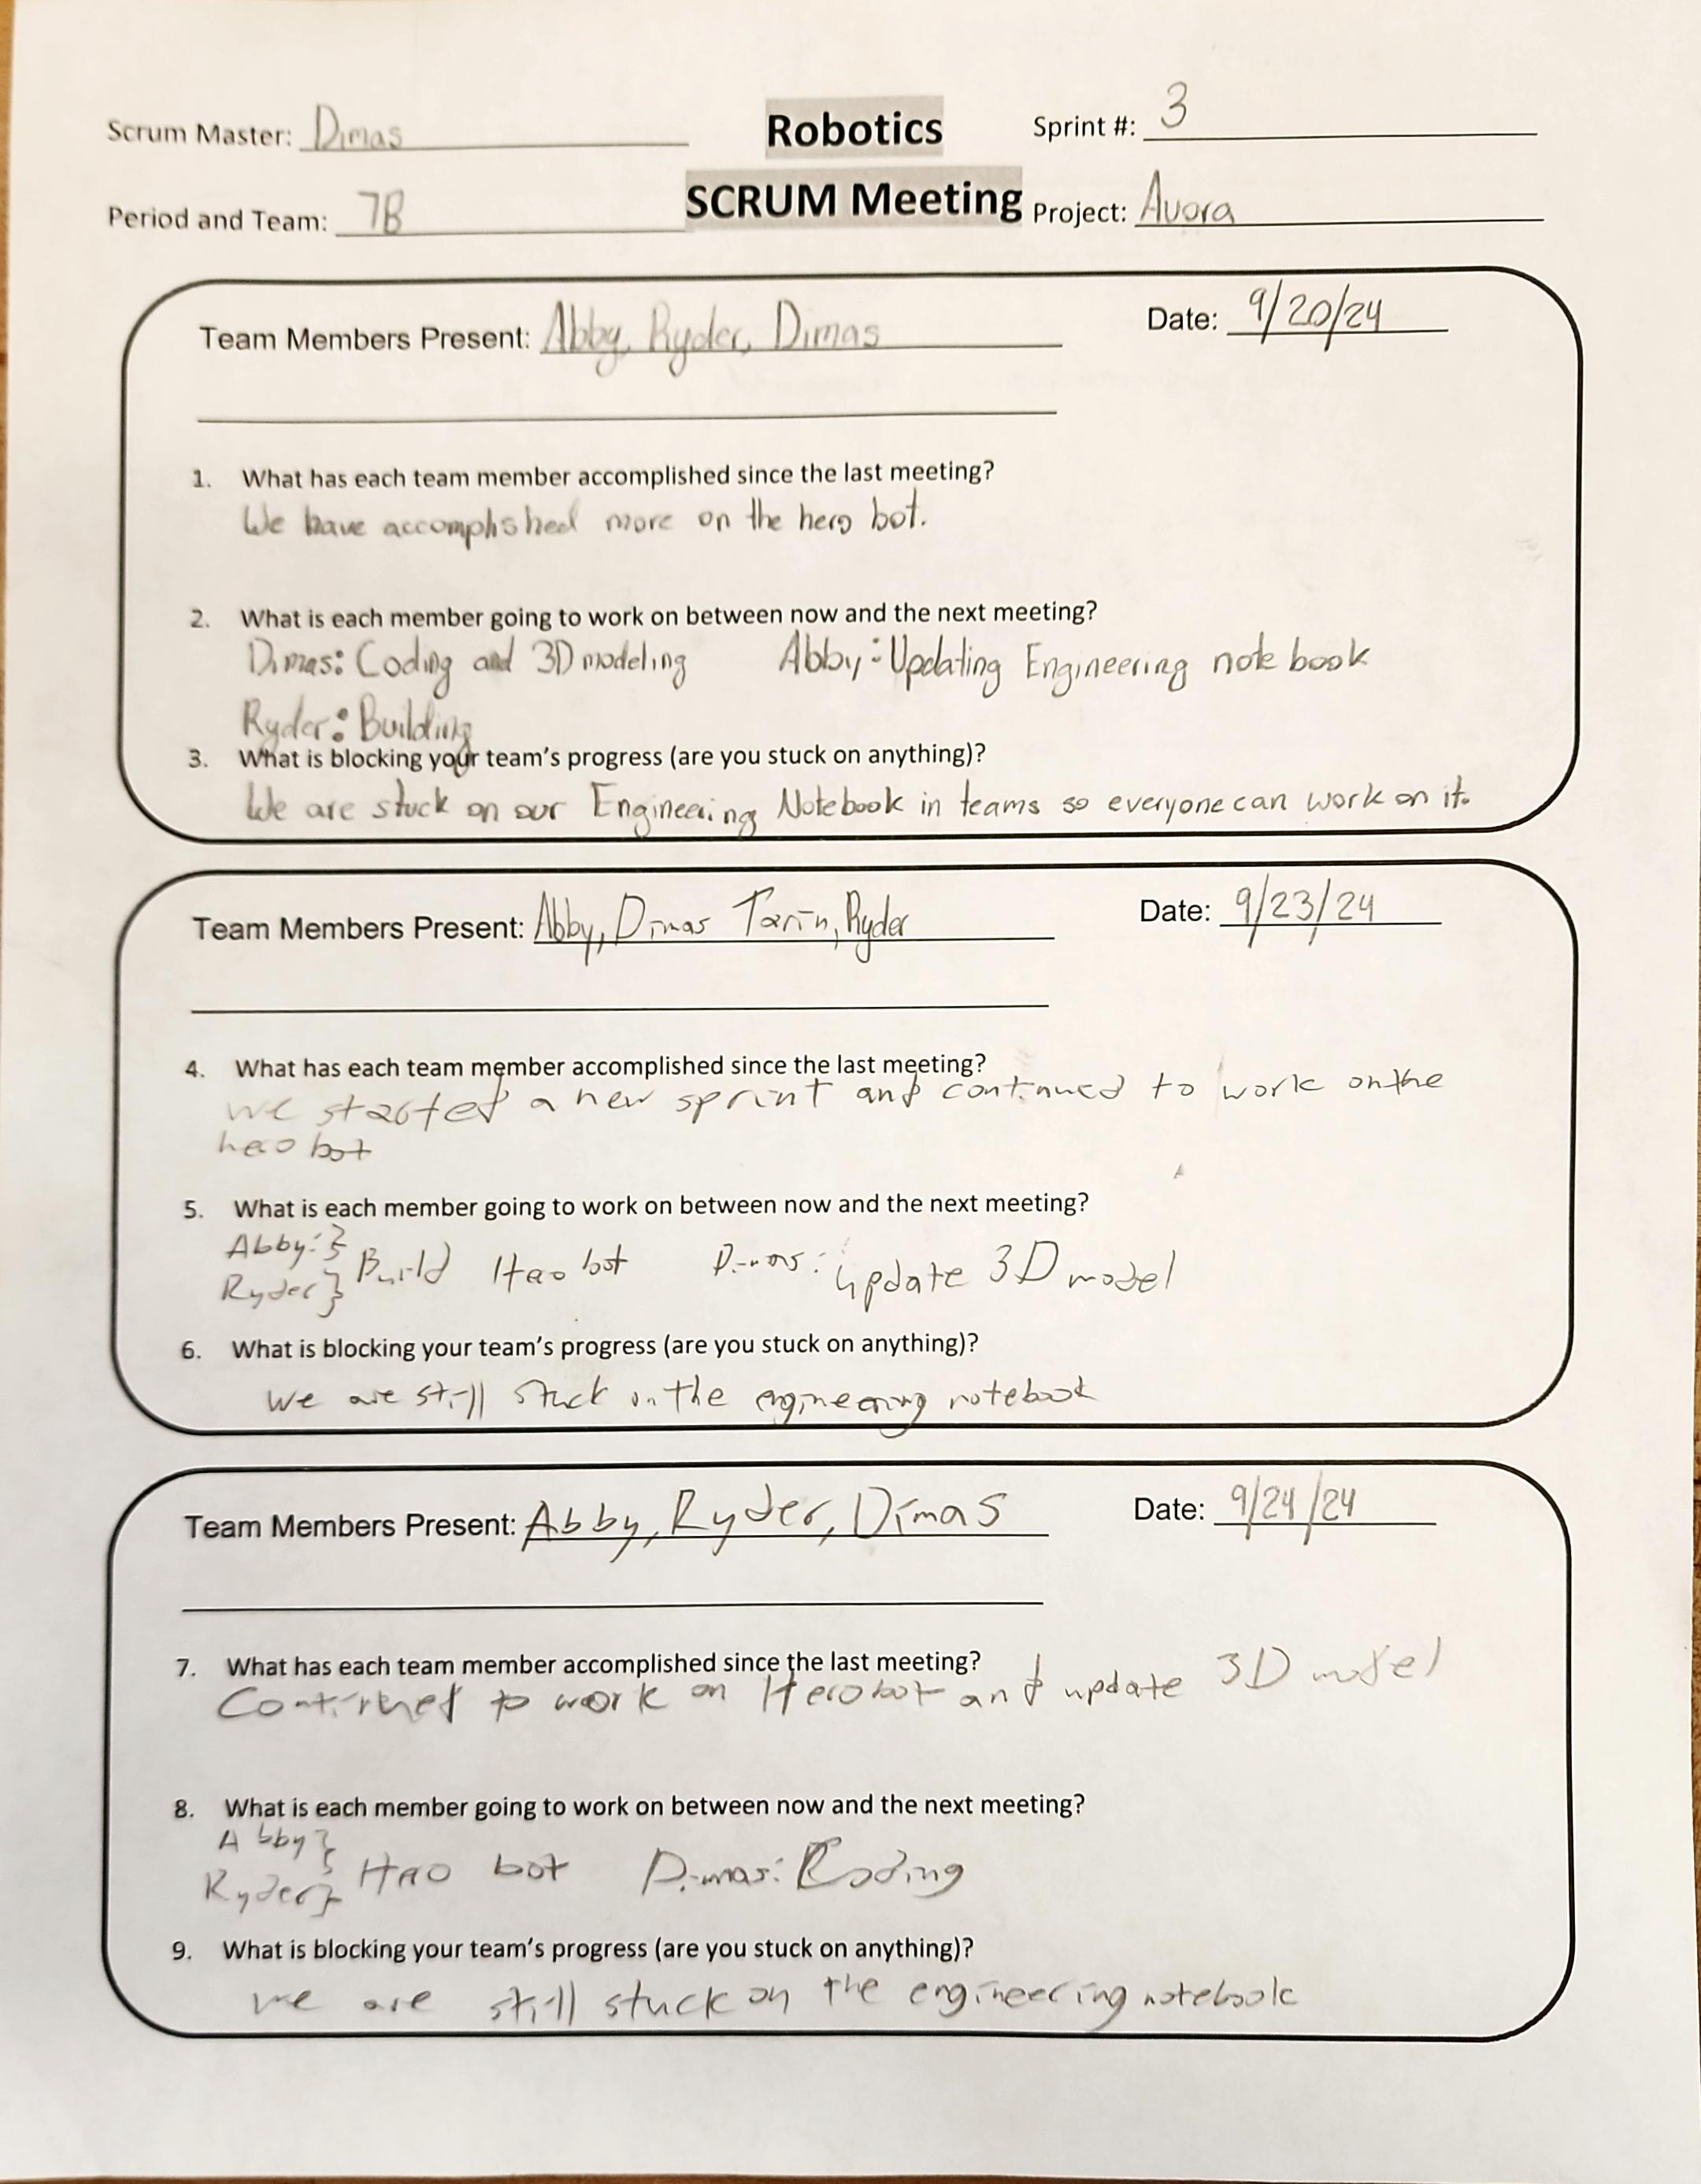 Scrum Master: Dimas
Robotics
Sprint #: 3
Period and Team: 7B
SCRUM Meeting
Project: Avora
Team Members Present: Abby, Ryder, Dimas
Date: 9/20/24
1. What has each team member accomplished since the last meeting?
We have accomplished more on the hero bot.
2. What is each member going to work on between now and the next meeting?
Dimas: Coding and 3D modeling Abby: Updating Engineering notebook
Ryder: Building
3. What is blocking your team's progress (are you stuck on anything)?
We are stuck on our Engineering Notebook in teams so everyone can work on it.
Team Members Present: Abby, Dimas Tarin, Ryder
Date: 9/23/24
4. What has each team member accomplished since the last meeting?
we started a new sprint and continued to work on the
hero bot
5. What is each member going to work on between now and the next meeting?
Abby: }
Ryder } Build Hero bot Dimas: update 3D model
6. What is blocking your team's progress (are you stuck on anything)?
We are still stuck on the engineering notebook
Team Members Present: Abby, Ryder, Dimas
Date: 9/24/24
7. What has each team member accomplished since the last meeting?
Continued to work on Hero bot and update 3D model
8. What is each member going to work on between now and the next meeting?
Abby }
Ryder } Hero bot Dimas: Coding
9. What is blocking your team's progress (are you stuck on anything)?
we are still stuck on the engineering notebook